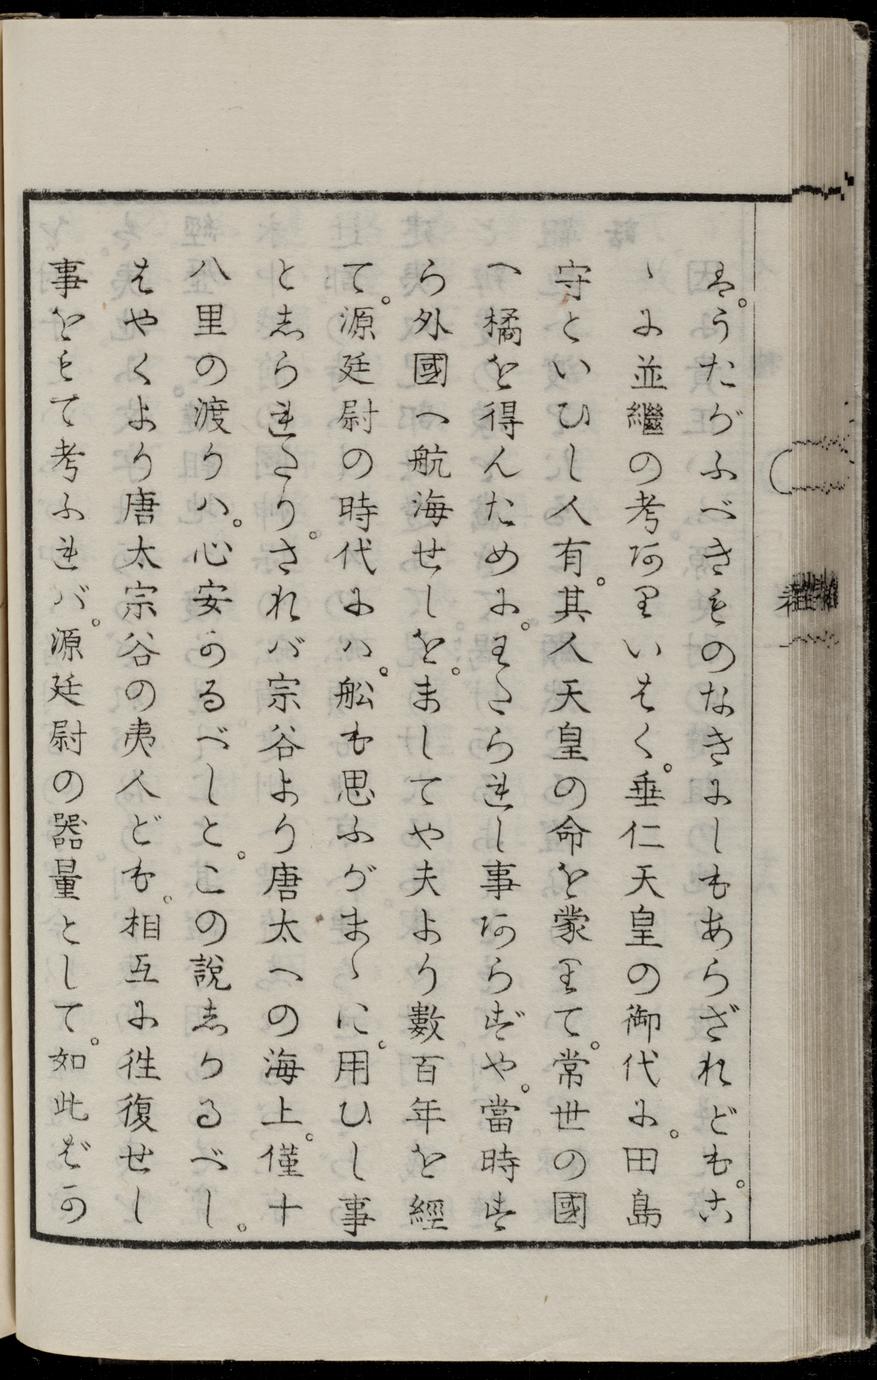 は。うたがふべきものなきにしもあらざれども。こ
ゝに並繼の考ありいはく。垂仁天皇の御代に。田島
守といひし人有。其人天皇の命を蒙りて。常世の國
へ橘を得んために。わたられし事あらずや。當時す
ら外國へ航海せしを。ましてや夫より數百年を經
て。源廷尉の時代にハ。舩も思ふがまゝに。用ひし事
としられたり。されバ宗谷より唐太への海上。僅十
八里の渡りハ。心安かるべしと。この說しかるべし。
はやくより唐太宗谷の夷人ども。相互に徃復せし
事をもて考ふれバ。源廷尉の器量として。如此ばか